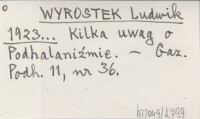 WYROSTEK Ludwik
1923... Kilka uwag o
Podhalaniźmie. – Gaz.
Podh. 11, nr 36.